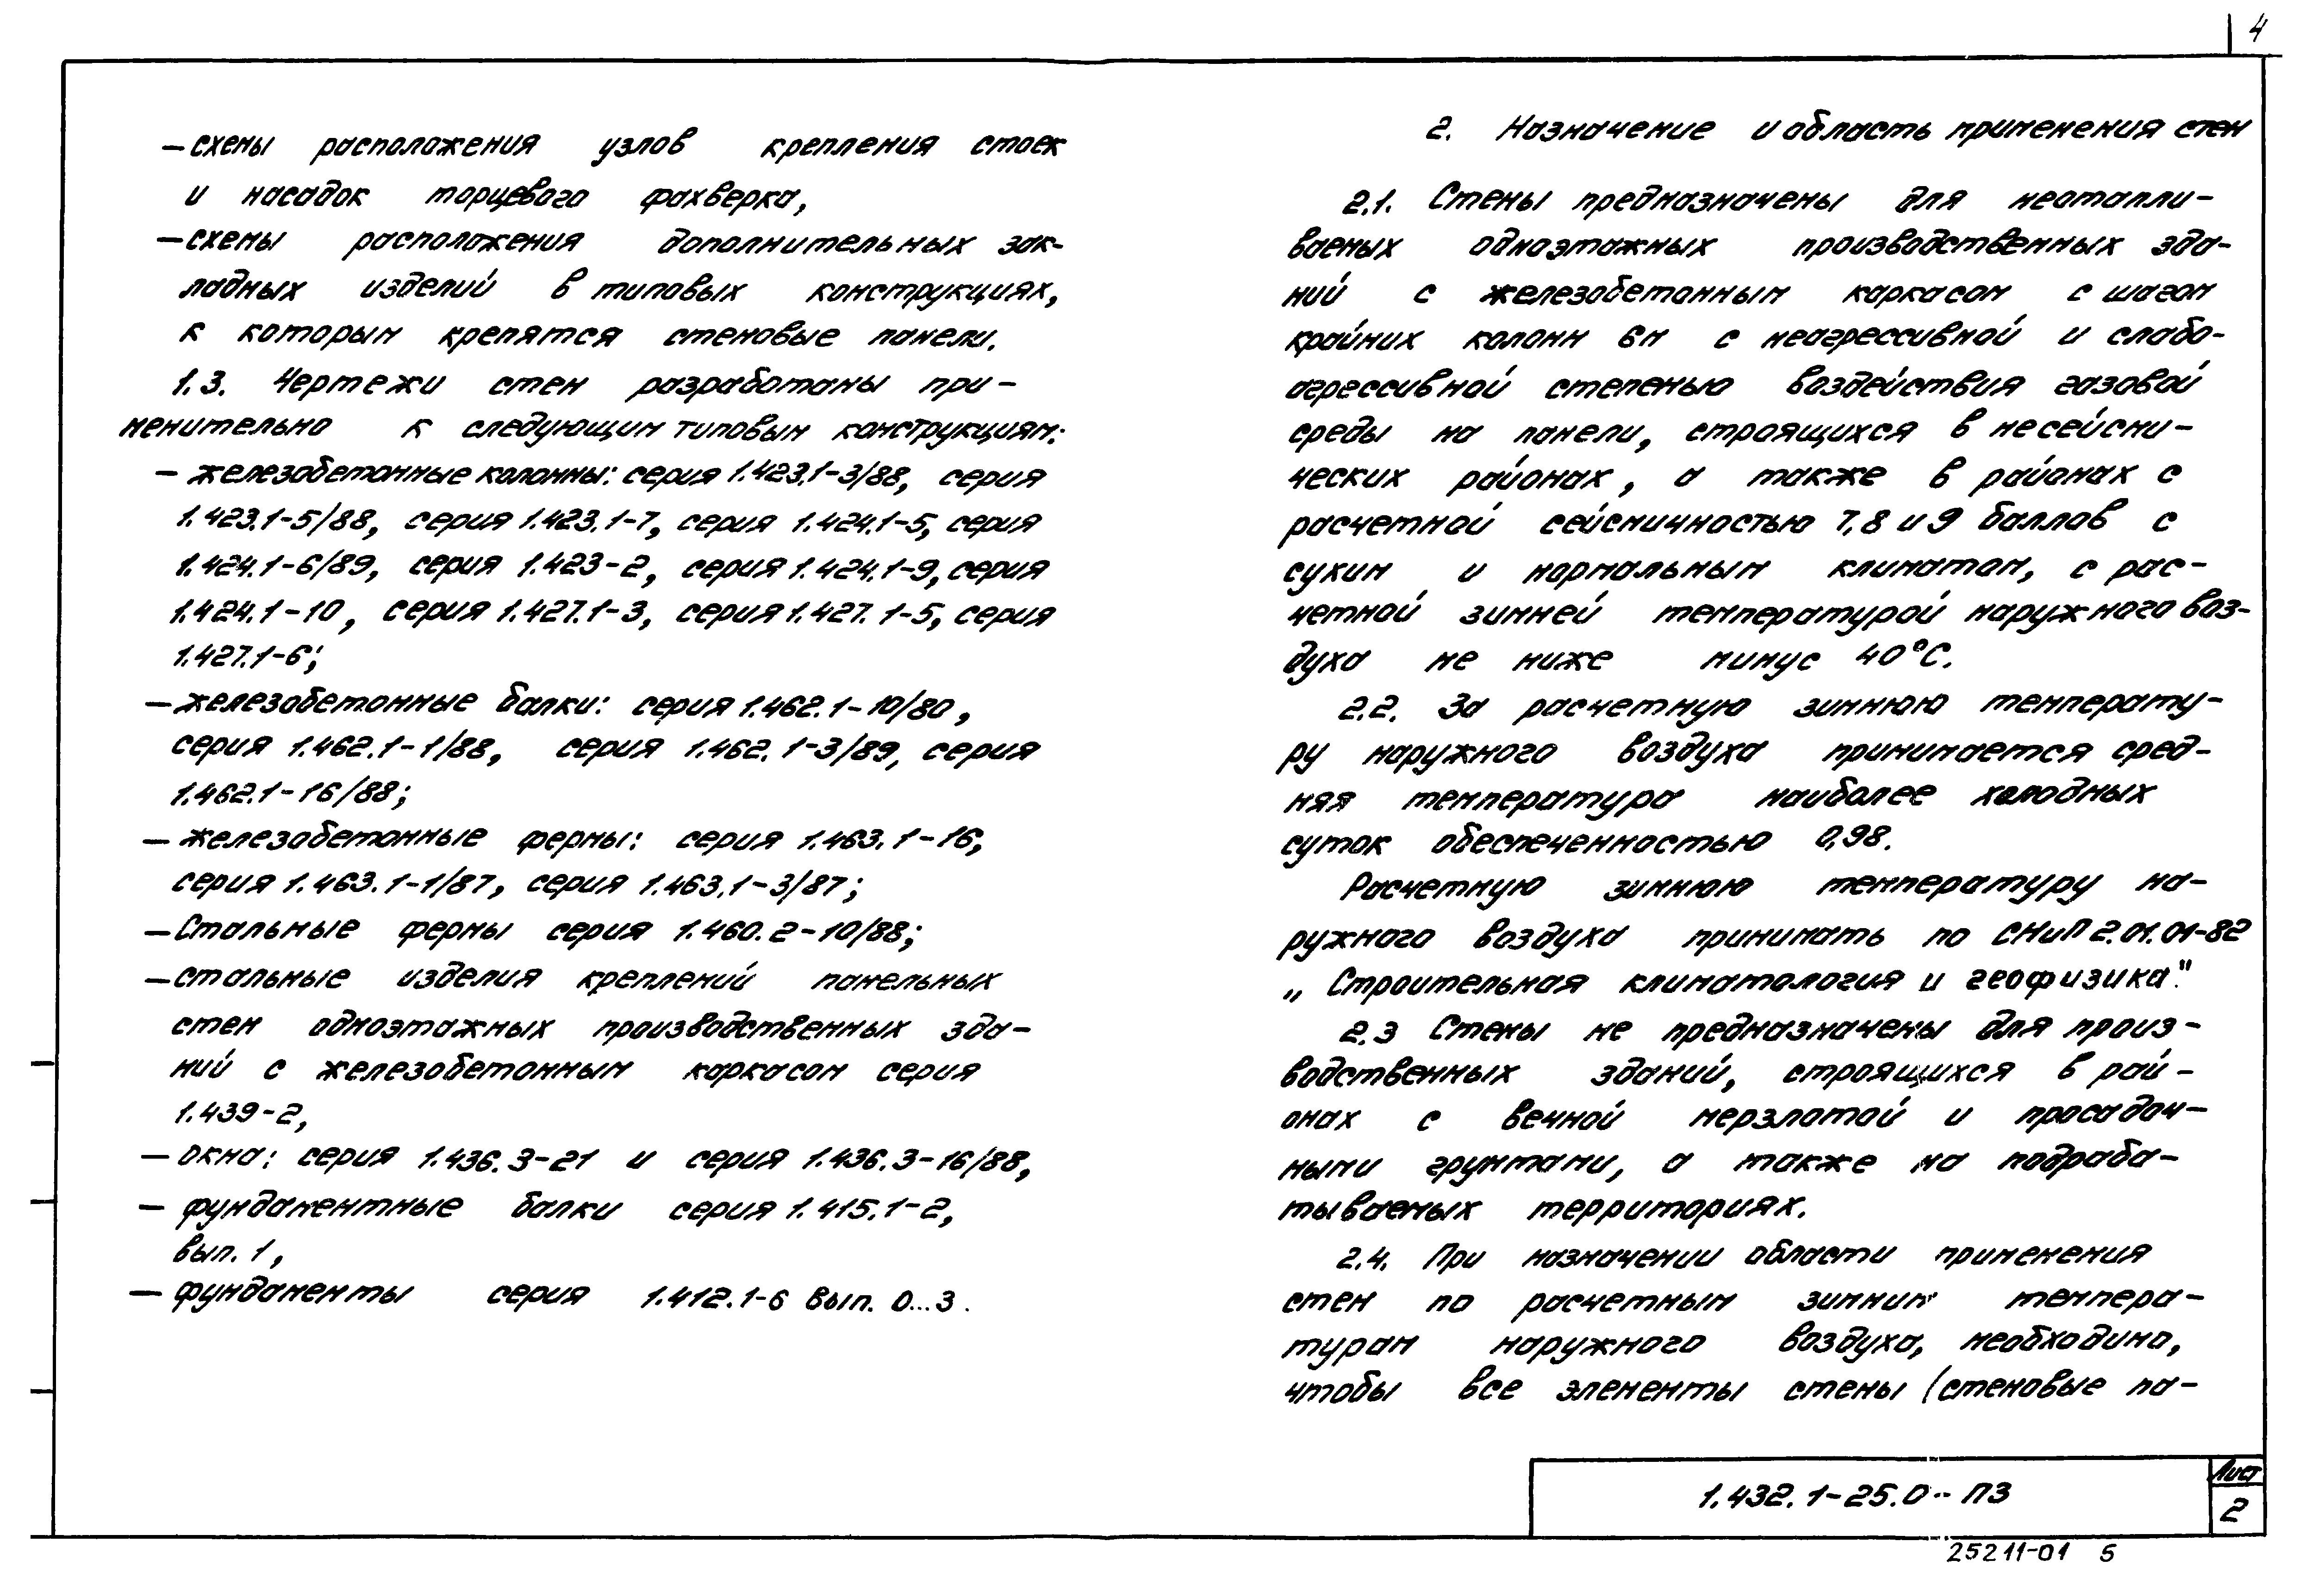 4
— схемы расположения узлов крепления стоек
и насадок торцевого фахверка,
— схемы расположения дополнительных зак-
ладных изделий в типовых конструкциях,
к которым крепятся стеновые панели.
1.3. Чертежи стен разработаны при-
менительно к следующим типовым конструкциям:
— железобетонные колонны: серия 1.423.1-3/88, серия
1.423.1-5/88, серия 1.423.1-7, серия 1.424.1-5, серия
1.424.1-6/89, серия 1.423-2, серия 1.424.1-9, серия
1.424.1-10, серия 1.427.1-3, серия 1.427.1-5, серия
1.427.1-6;
— железобетонные балки: серия 1.462.1-10/80,
серия 1.462.1-1/88, серия 1.462.1-3/89, серия
1.462.1-16/88;
— железобетонные фермы: серия 1.463.1-16,
серия 1.463.1-1/87, серия 1.463.1-3/87;
— Стальные фермы серия 1.460.2-10/88;
— стальные изделия креплений панельных
стен одноэтажных производственных зда-
ний с железобетонным каркасом серия
1.439-2,
— окна: серия 1.436.3-21 и серия 1.436.3-16/88,
— фундаментные балки серия 1.415.1-2,
вып. 1,
— фундаменты серия 1.412.1-6 вып. 0...3.
2. Назначение и область применения стен
2.1. Стены предназначены для неотапли-
ваемых одноэтажных производственных зда-
ний с железобетонным каркасом с шагом
крайних колонн 6м с неагрессивной и слабо-
агрессивной степенью воздействия газовой
среды на панели, строящихся в несейсми-
ческих районах, а также в районах с
расчетной сейсмичностью 7,8 и 9 баллов с
сухим и нормальным климатом, с рас-
четной зимней температурой наружного воз-
духа не ниже минус 40°С.
2.2. За расчетную зимнюю температу-
ру наружного воздуха принимается сред-
няя температура наиболее холодных
суток обеспеченностью 0,98.
Расчетную зимнюю температуру на-
ружного воздуха принимать по СНиП 2.01.01-82
„Строительная климатология и геофизика."
2.3 Стены не предназначены для произ-
водственных зданий, строящихся в рай-
онах с вечной мерзлотой и просадоч-
ными грунтами, а также на подраба-
тываемых территориях.
2.4. При назначении области применения
стен по расчетным зимним темпера-
турам наружного воздуха, необходимо,
чтобы все элементы стены (стеновые па-
1.432.1-25.0-ПЗ
Лист
2
25211-01 5